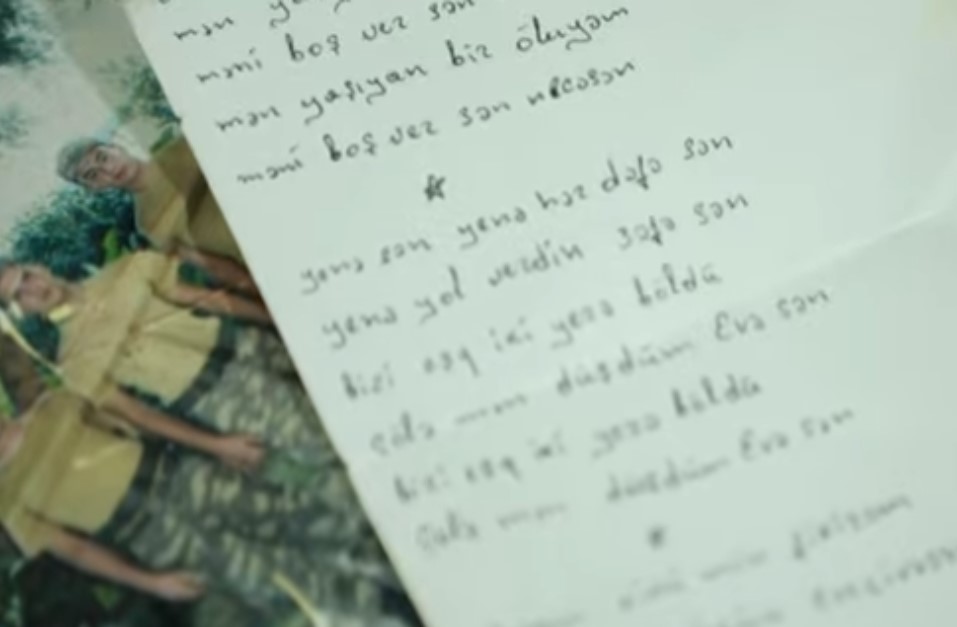 mən
məni boş ver sən
mən yaşıyan bir ölüyəm
məni boş ver sən necəsən
yenə sən yenə hər dəfə sən
yenə yol verdin səfə sən
bizi eşq iki yerə böldü
çölə mən düşdüm Evə sən
bizi eşq iki yerə böldü
çölə mən düşdüm Evə sən